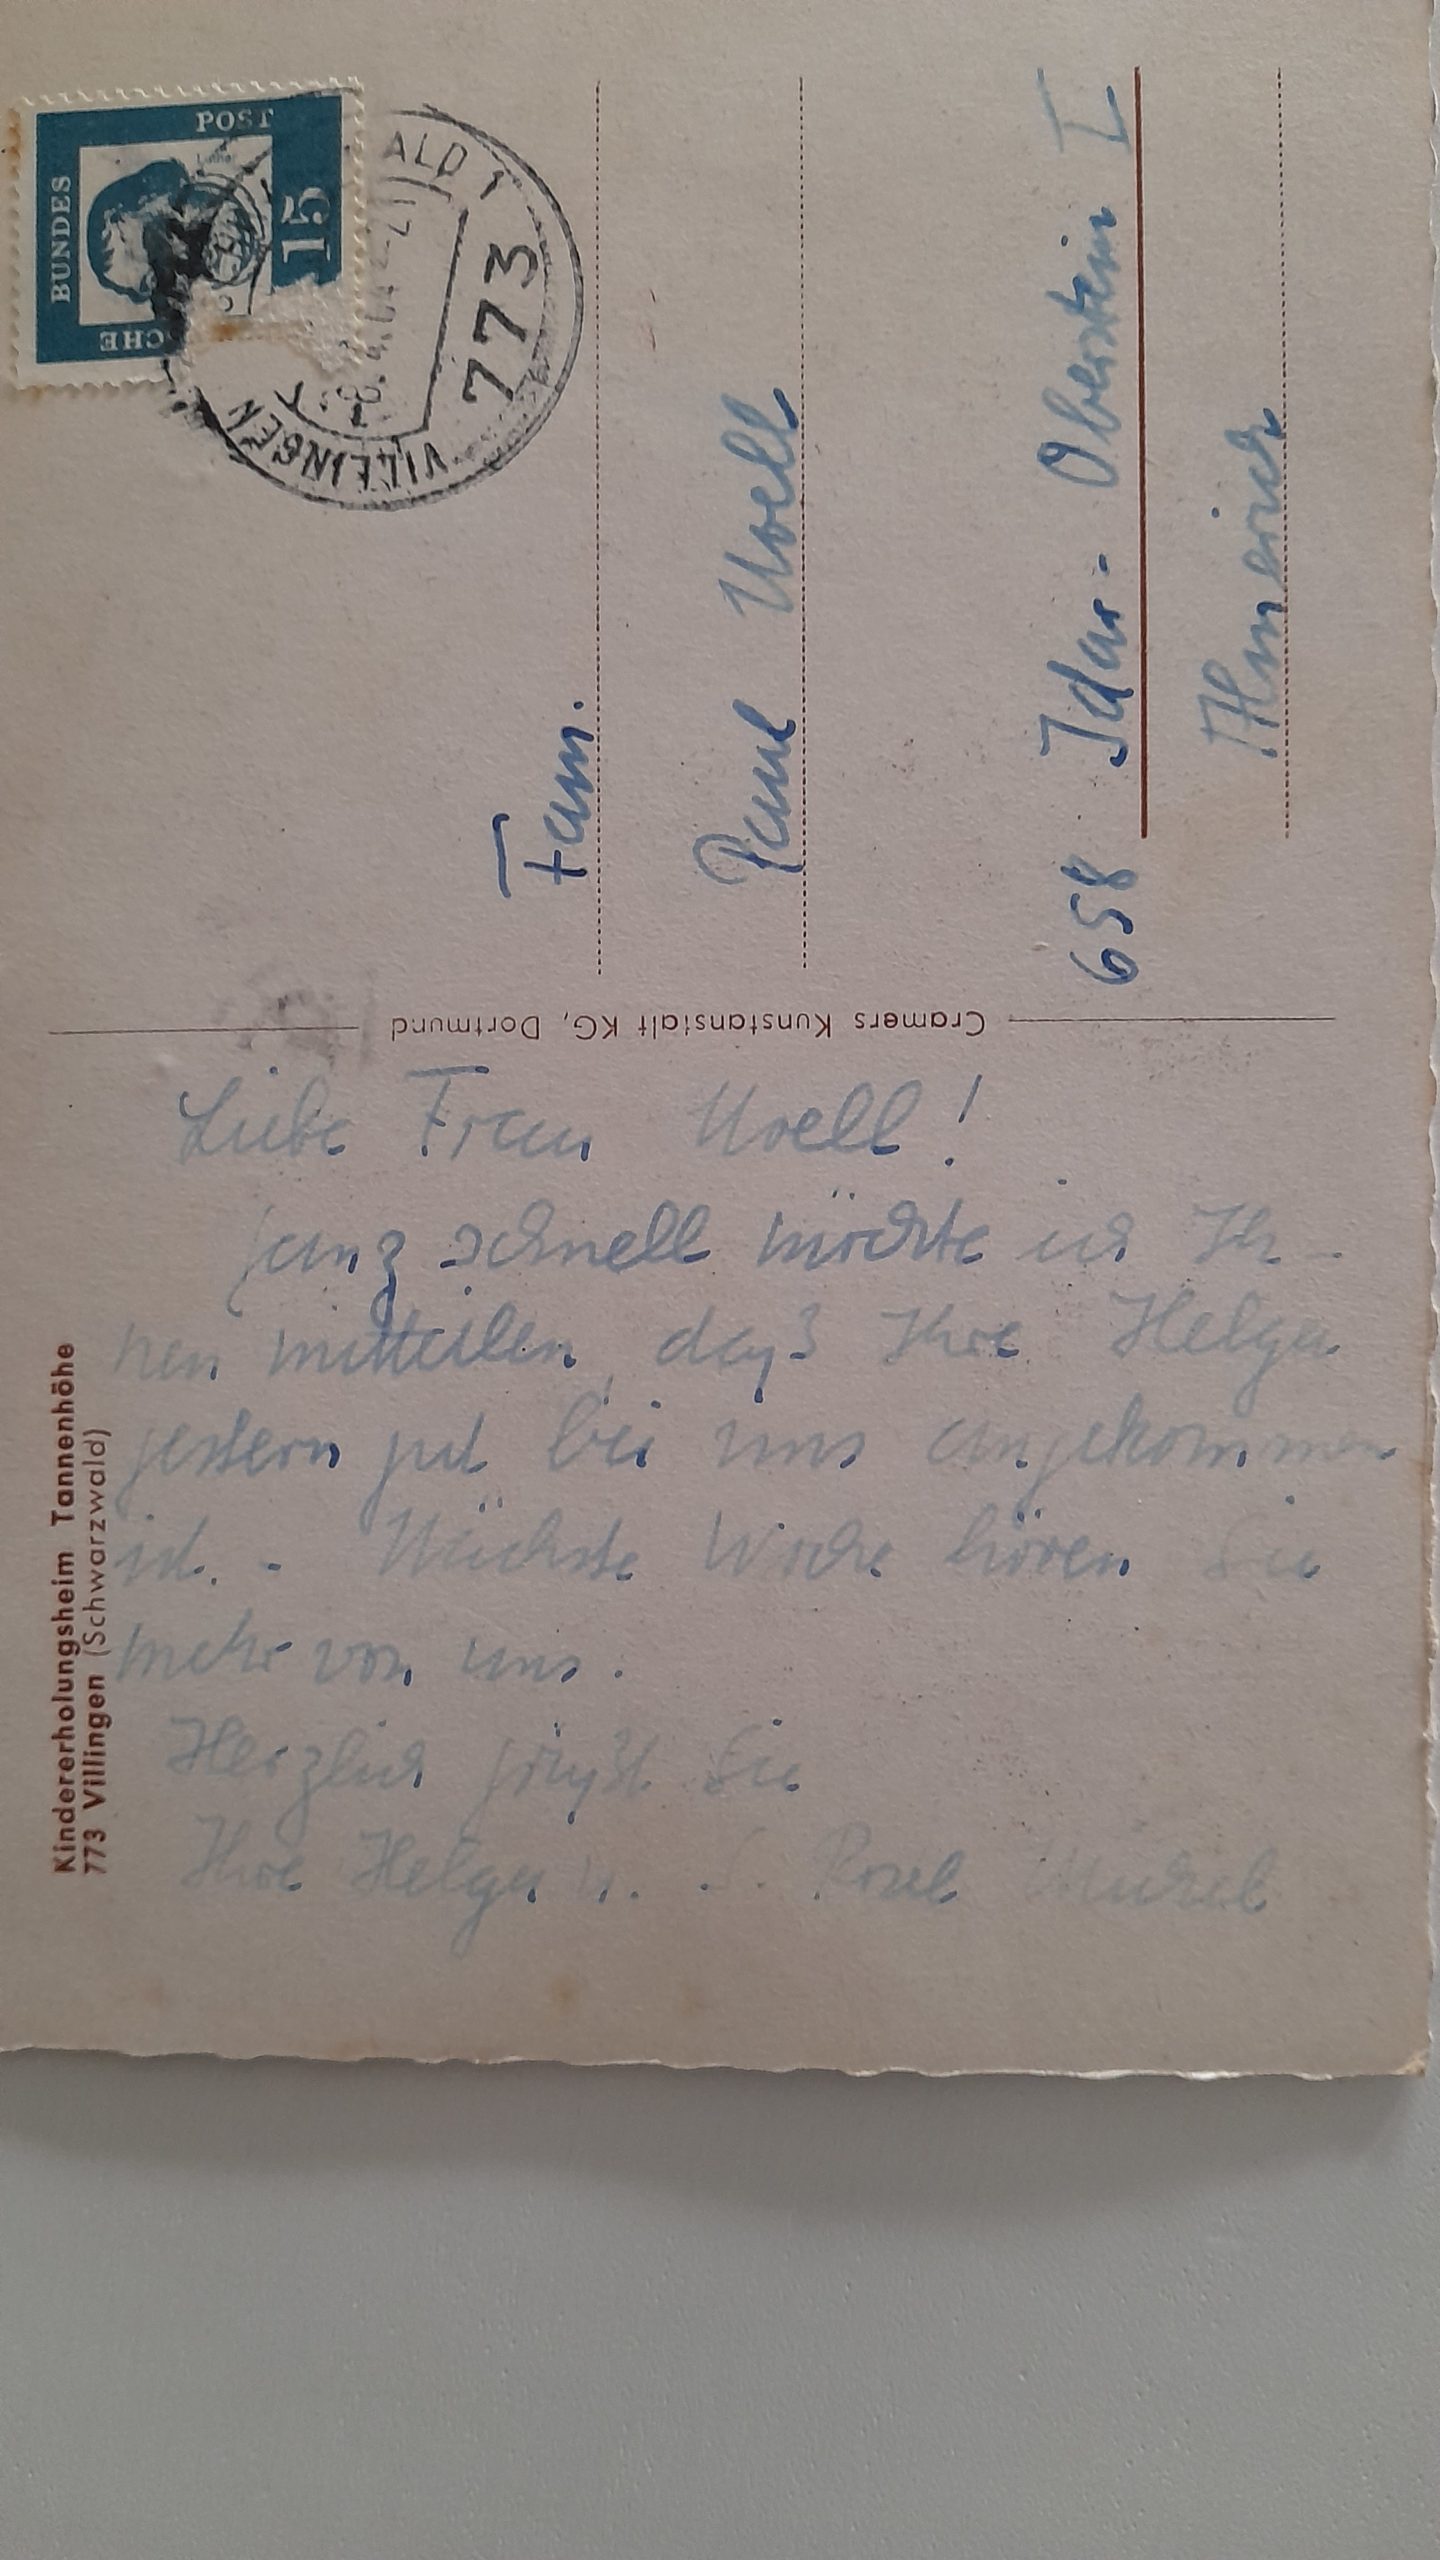 Kindererholungsheim Tannenhöhe
773 Villingen (Schwarzwald)
Liebe Frau Noell!
ganz schnell möchte ich Ih-
nen mitteilen, daß Ihre Helga
gestern gut bei uns angekommen
ist. - Nächste Woche hören Sie
mehr von uns.
Herzlich grüßt Sie
Ihre Helga u. Rosel
Cramers Kunstanstalt KG, Dortmund
DEUTSCHE
BUNDES
POST
15
VILLINGEN
773
Fam.
Paul Noell
658 Idar-Oberstein I